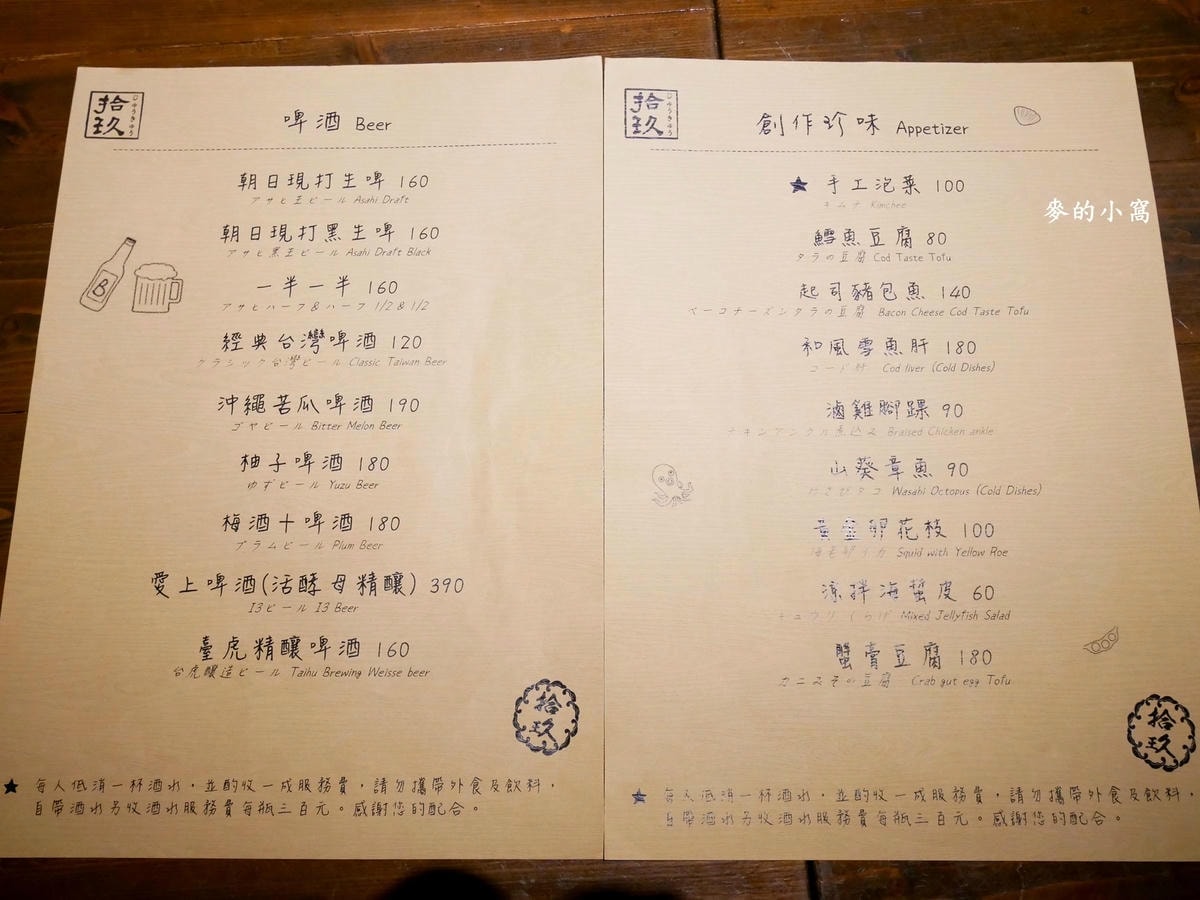 拾玖
じゅうきゅう
啤酒 Beer
朝日現打生啤 160
アサヒ生ビール Asahi Draft
朝日現打黑生啤 160
アサヒ黒生ビール Asahi Draft Black
一半一半 160
アサヒハーフ&ハーフ 1/2 & 1/2
經典台灣啤酒 120
クラシック台灣ビール Classic Taiwan Beer
沖繩苦瓜啤酒 190
ゴヤビール Bitter Melon Beer
柚子啤酒 180
ゆずビール Yuzu Beer
梅酒十啤酒 180
プラムビール Plum Beer
愛上啤酒(活酵母精釀) 390
I3ビール I3 Beer
臺虎精釀啤酒 160
台虎醸造ビール Taihu Brewing Weisse beer
拾玖
★ 每人低消一杯酒水，並酌收一成服務費，請勿攜帶外食及飲料，
自帶酒水另收酒水服務費每瓶三百元。感謝您的配合。
拾玖
じゅうきゅう
創作珍味 Appetizer
★ 手工泡菜 100
キムチ Kimchee
鱈魚豆腐 80
タラの豆腐 Cod Taste Tofu
起司豬包魚 140
ベーコチーズンタラの豆腐 Bacon Cheese Cod Taste Tofu
和風雪魚肝 180
コード肝 Cod liver (Cold Dishes)
滷雞腳踝 90
チキンアンクル煮込み Braised Chicken ankle
山葵章魚 90
わさびタコ Wasabi Octopus (Cold Dishes)
黃金卵花枝 100
海老卵イカ Squid with Yellow Roe
涼拌海蜇皮 60
キュウリくらげ Mixed Jellyfish Salad
蟹膏豆腐 180
カニみその豆腐 Crab gut egg Tofu
拾玖
★ 每人低消一杯酒水，並酌收一成服務費，請勿攜帶外食及飲料，
自帶酒水另收酒水服務費每瓶三百元。感謝您的配合。
麥的小窩
B